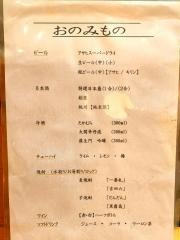 おのみもの
ビール　アサヒスーパードライ
生ビール(中)(小)
瓶ビール(中)【アサヒ / キリン】
日本酒　特選日本盛(1合)/(2合)
冷酒　たかむら
大関辛丹波
吟醸
チューハイ　ライム・レモン・梅
焼酎　(水割り/お湯割り/ロック)
麦焼酎　「一番札」
「吉四六」
芋焼酎　「だんだん」
「黒霧島」
ワイン　【赤・白】ハーフボトル
ソフトドリンク　ジュース・コーラ・ウーロン茶